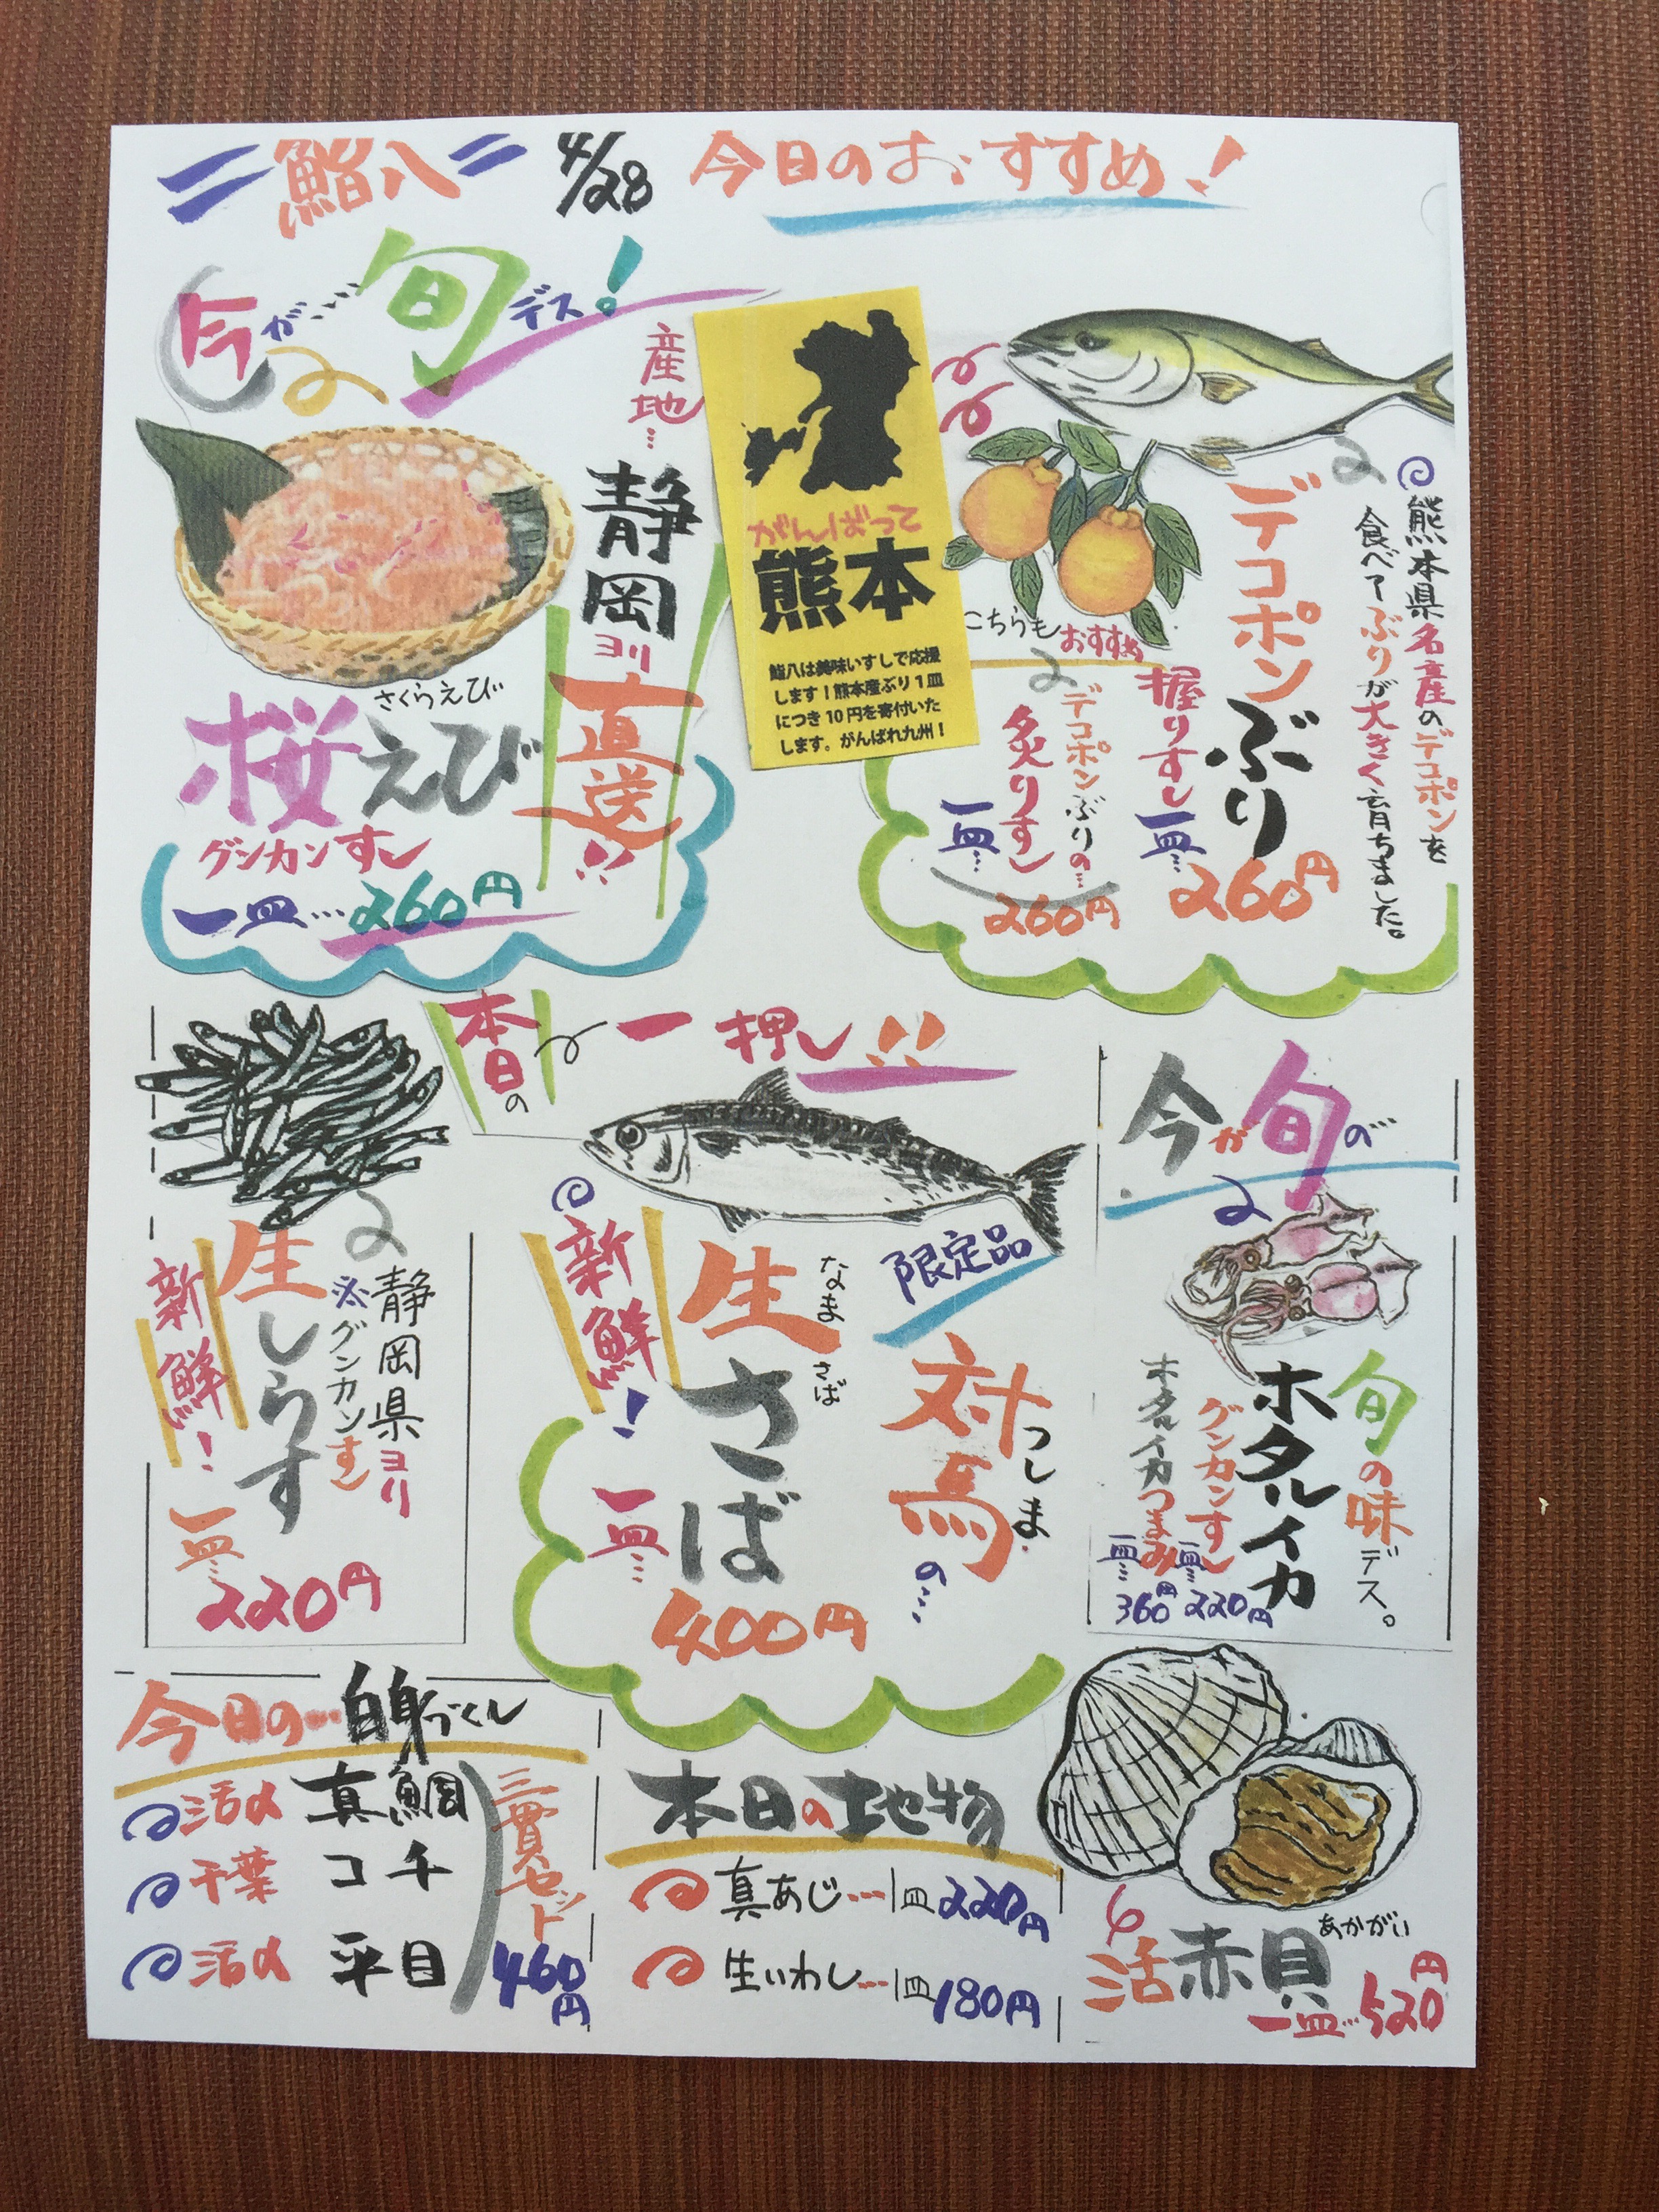 鮨八 4/28 今日のおすすめ!
今が…旬デス!
産地…静岡ヨリ直送!!
さくらえび
桜えび
グンカンすし
一皿…260円
がんばって
熊本
鮨八は美味いすしで応援
します!熊本産ぶり1皿
につき10円を寄付いた
します。がんばれ九州!
熊本県名産のデコポンを
食べてぶりが大きく育ちました。
デコポンぶり
握りすし一皿…
260円
こちらもおすすめ
デコポンぶりの…
炙りすし
一皿…
260円
静岡県ヨリ
※グンカンすし
生しらす
新鮮!
一皿…
220円
本日の一押し!!
限定品
対馬の…
つしま
なまさば
生さば
新鮮!
一皿…
400円
今が旬の…
旬の味デス。
ホタルイカ
グンカンすし
一皿…220円
ホタルイカつまみ
一皿…360円
今日の…白身づくし
活〆 真鯛
千葉 コチ
活〆 平目
三貫セット
460円
本日の地物
真あじ…一皿220円
生いわし…一皿180円
あかがい
活赤貝
一皿…520円